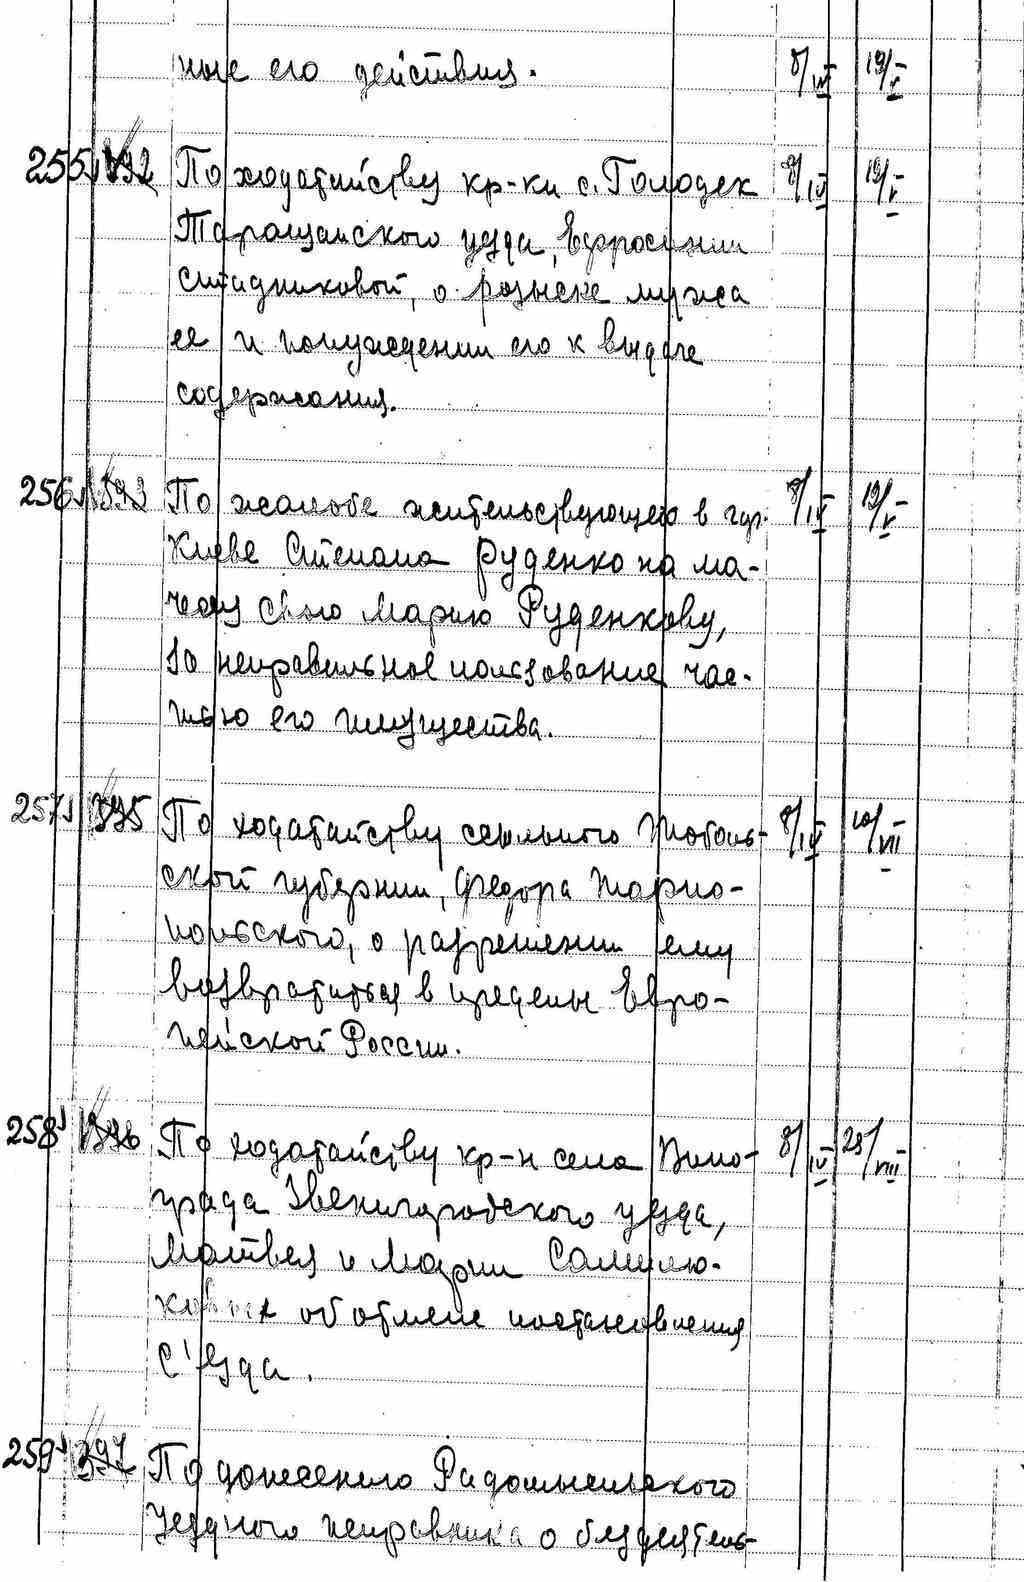 ные его действия. 8/IV 19/V
255 392 По ходатайству кр-ки с. Голодек 8/IV 19/V
Таращанского уезда, Ефросинии
Стадниковой, о розыске мужа
ее и понуждении его к выдаче
содержания.
256 393 По жалобе жительствующего в гор. 8/IV 19/V
Киеве Степана Руденко на ма-
чеху свою Марию Руденкову,
за неправильное пользование час-
тью его имущества.
257 395 По ходатайству ссыльного Тоболь- 8/IV 10/VII
ской губернии, Федора Тарно-
польского, о разрешении ему
возвратиться в пределы Евро-
пейской России.
258 396 По ходатайству кр-н села Вино- 8/IV 25/VIII
града Звенигородского уезда,
Матвея и Марии
об отмене постановления
С'езда.
259 397 По донесению Радомысльского
Уездного исправника о бездеятель-